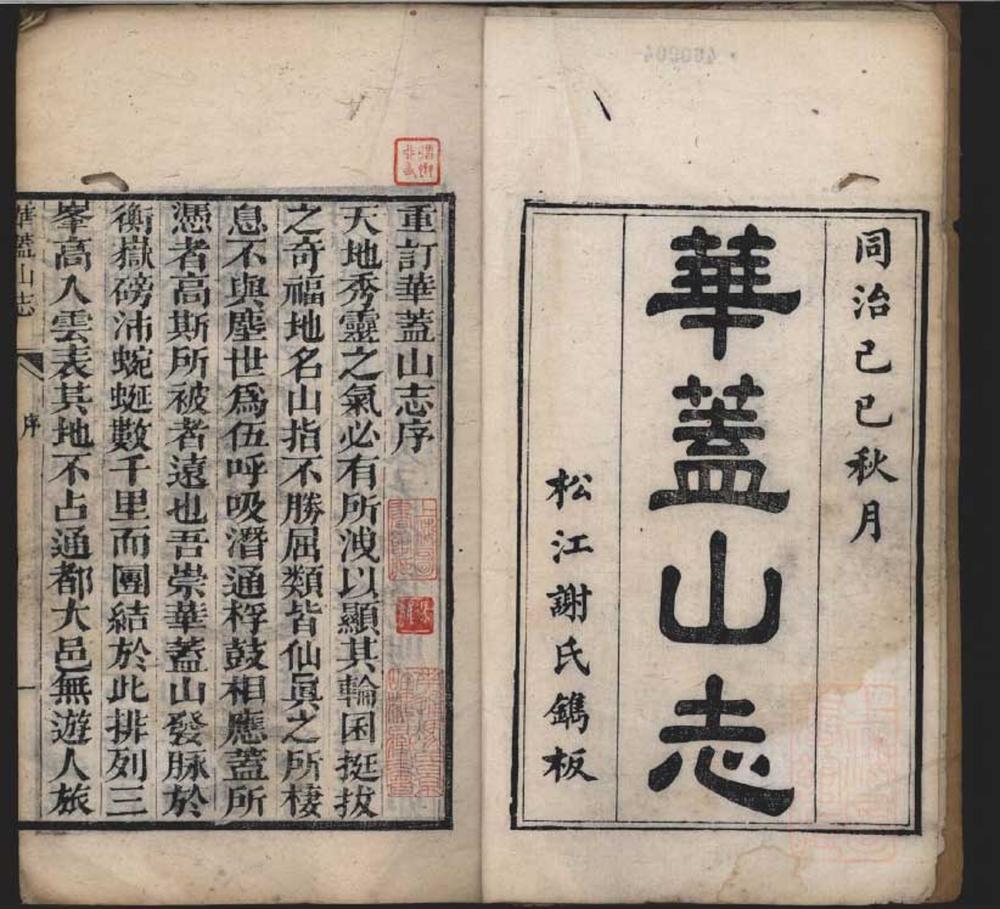 同治己巳秋月
華蓋山志
松江謝氏鐫板
重訂華蓋山志序
天地秀靈之氣必有所洩以顯其輪囷挺拔
之奇福地名山指不勝屈類皆仙眞之所棲
息不與塵世爲伍呼吸潛通桴鼓相應蓋所
憑者高斯所被者遠也吾崇華蓋山發脉於
衡嶽磅沛蜿蜒數千里而團結於此排列三
峯高入雲表其地不占通都大邑無遊人旅
華蓋山志
序
一